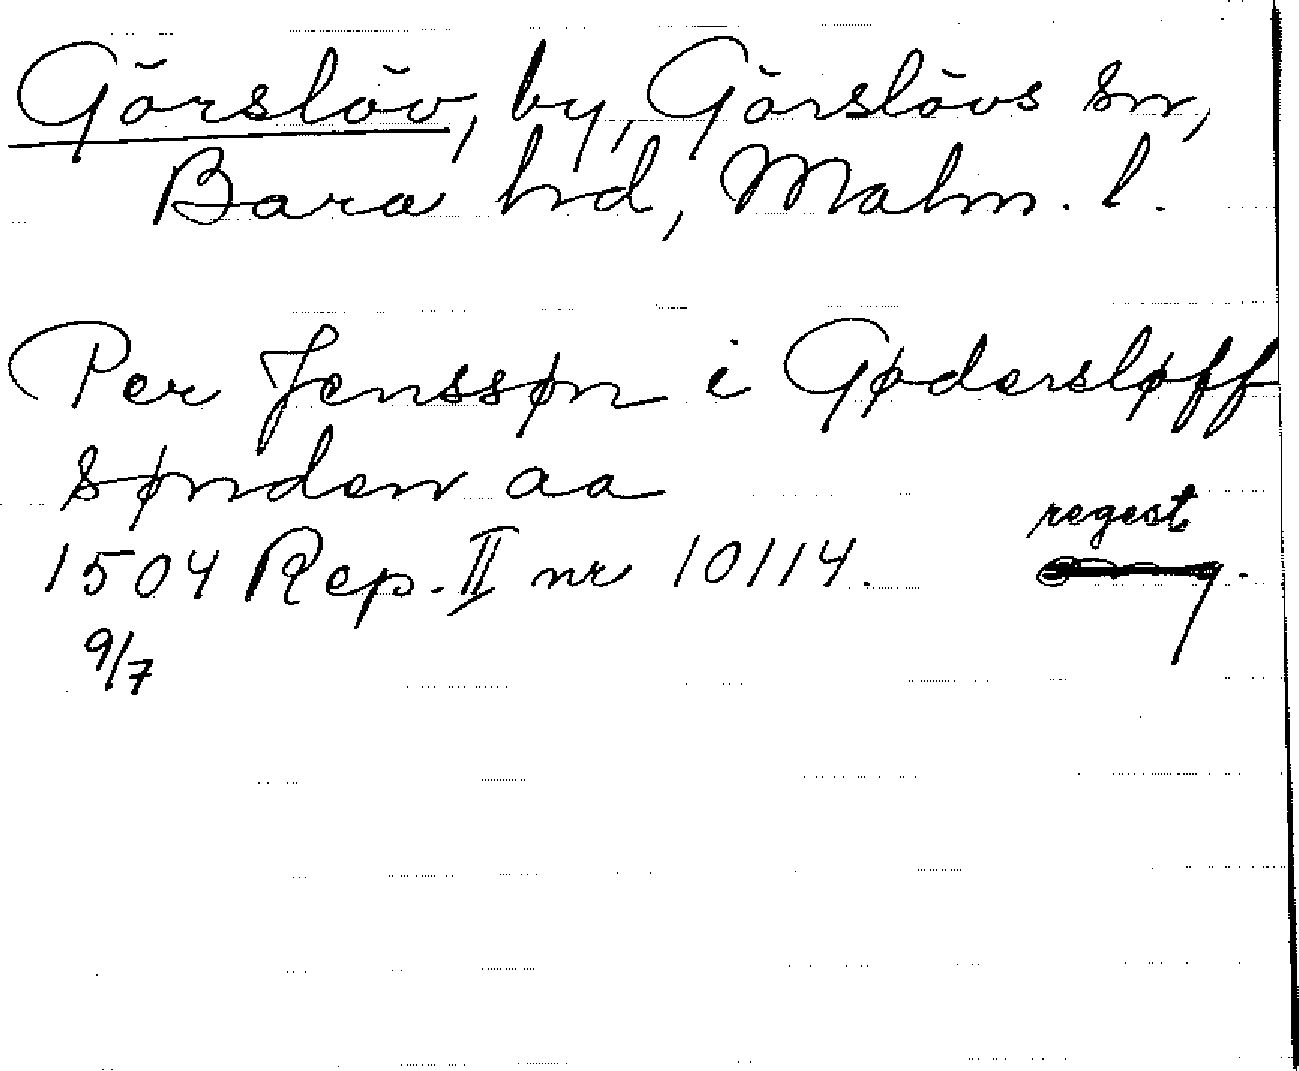 Görslöv, by, Görslövs sn,
Bara hd, Malm. l.
Per Jenssøn i Gødersløff
sønden aa
regest
1504 Rep. II nr 10114.
9/7